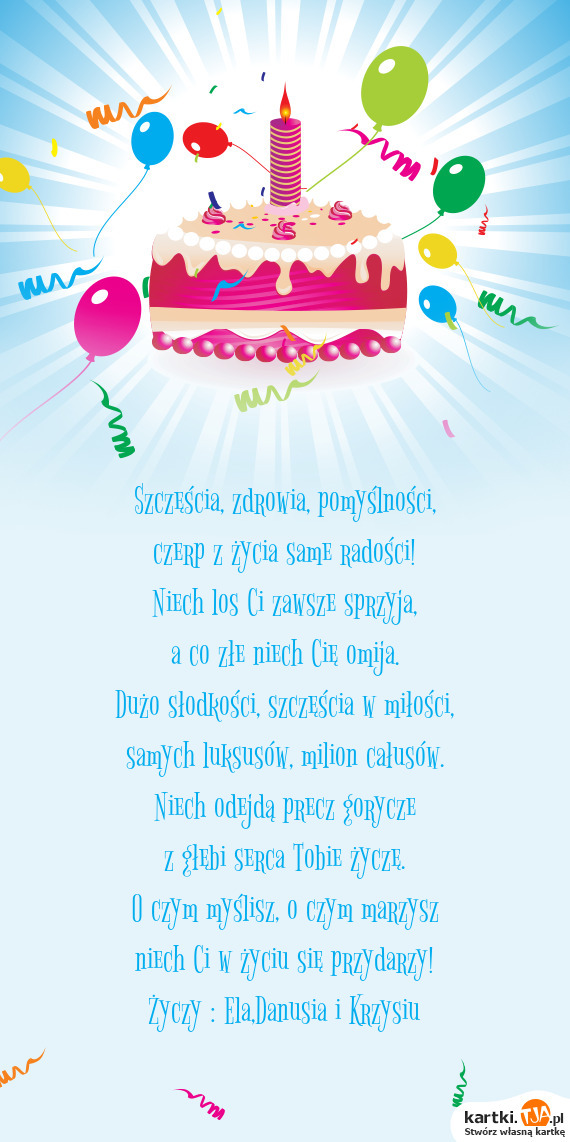 Szczęścia, zdrowia, pomyślności,
czerp z życia same radości!
Niech los Ci zawsze sprzyja,
a co złe niech Cię omija.
Dużo słodkości, szczęścia w miłości,
samych luksusów, milion całusów.
Niech odejdą precz gorycze
z głębi serca Tobie życzę.
O czym myślisz, o czym marzysz
niech Ci w życiu się przydarzy!
Życzy : Ela,Danusia i Krzysiu
kartki.TJA.pl
Stwórz własną kartkę